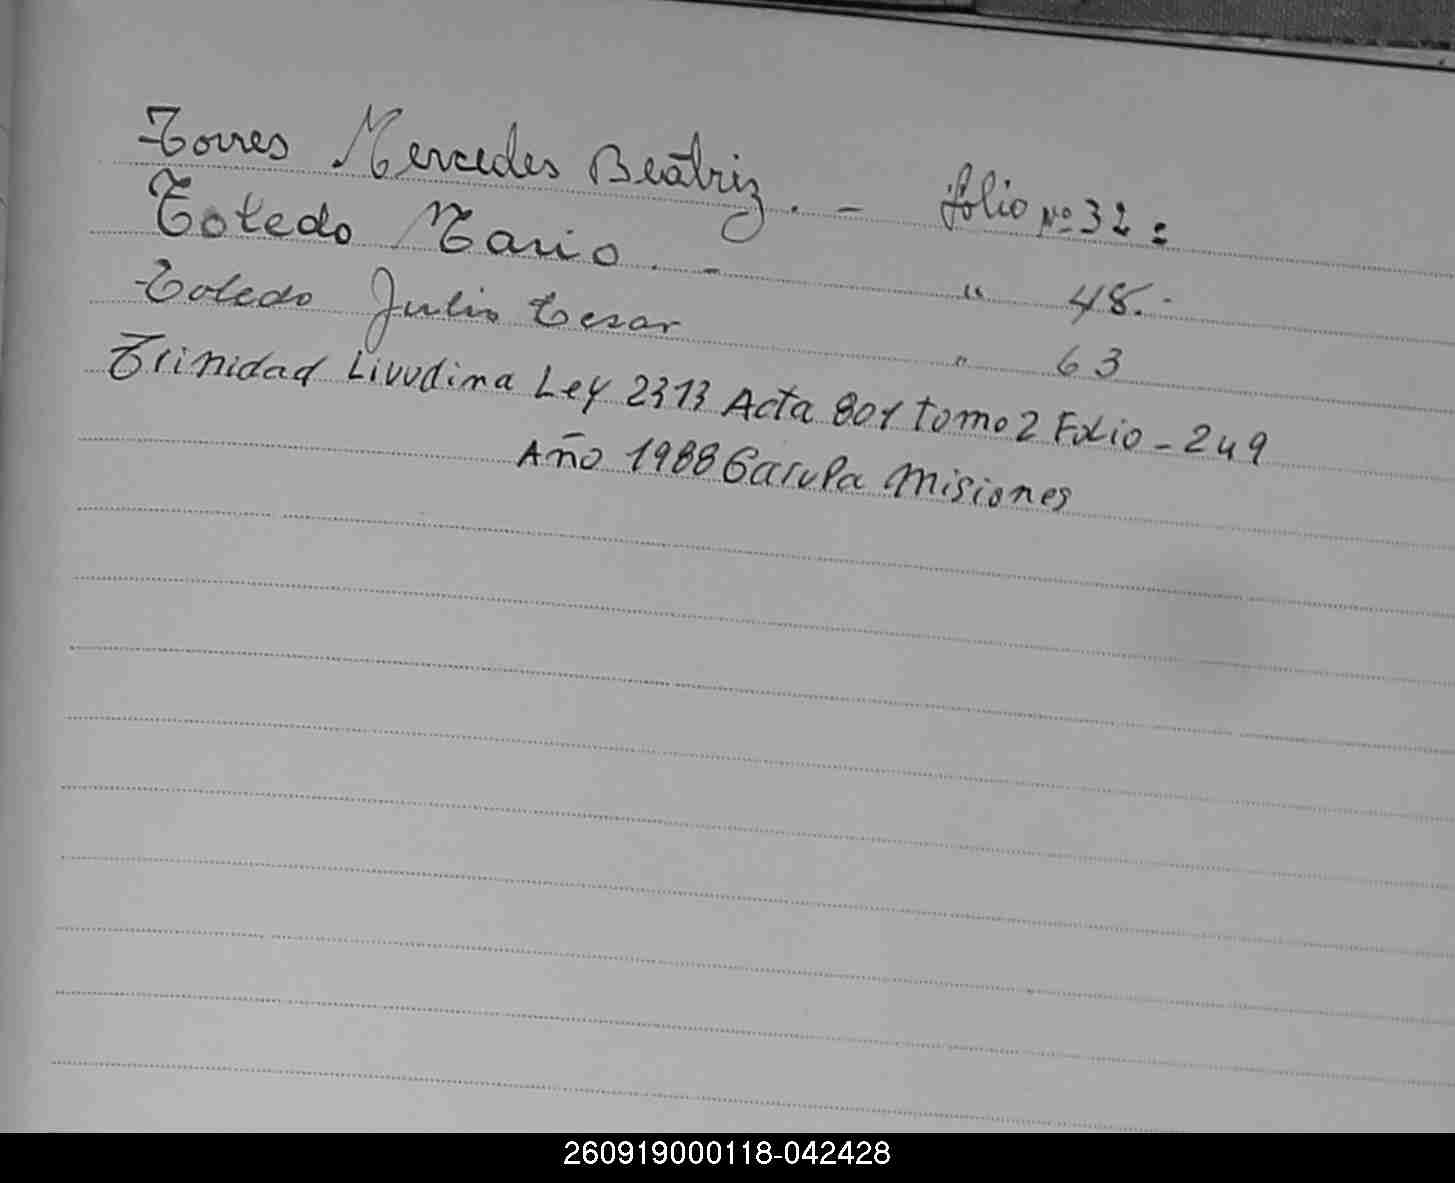 Torres Mercedes Beatriz. - folio Nº 32 =
Toledo Mario. - " 48.-
Toledo Julio Cesar " 63
Trinidad Ley 2313 Acta 801 tomo 2 Folio - 249
Año 1988 Garupa Misiones
260919000118-042428